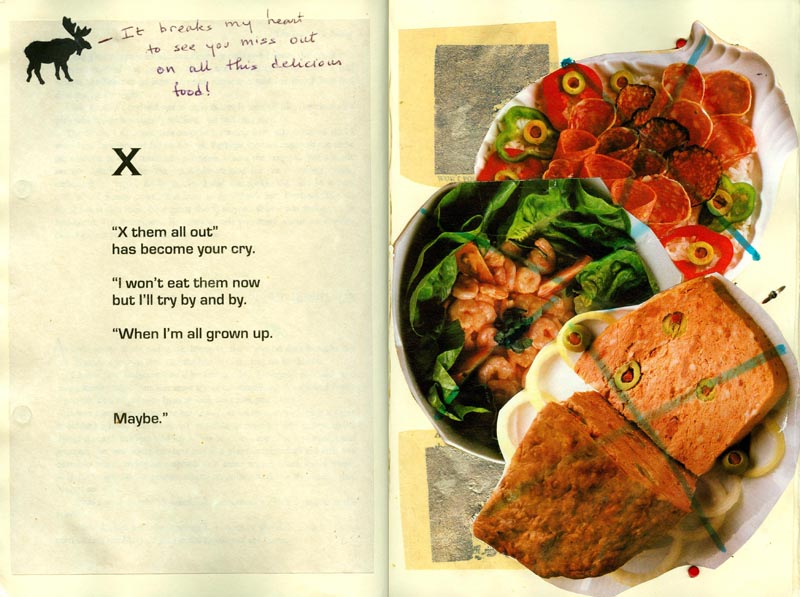 It breaks my heart
to see you miss out
on all this delicious
food!
X
“X them all out”
has become your cry.
“I won’t eat them now
but I’ll try by and by.
“When I’m all grown up.
Maybe.”